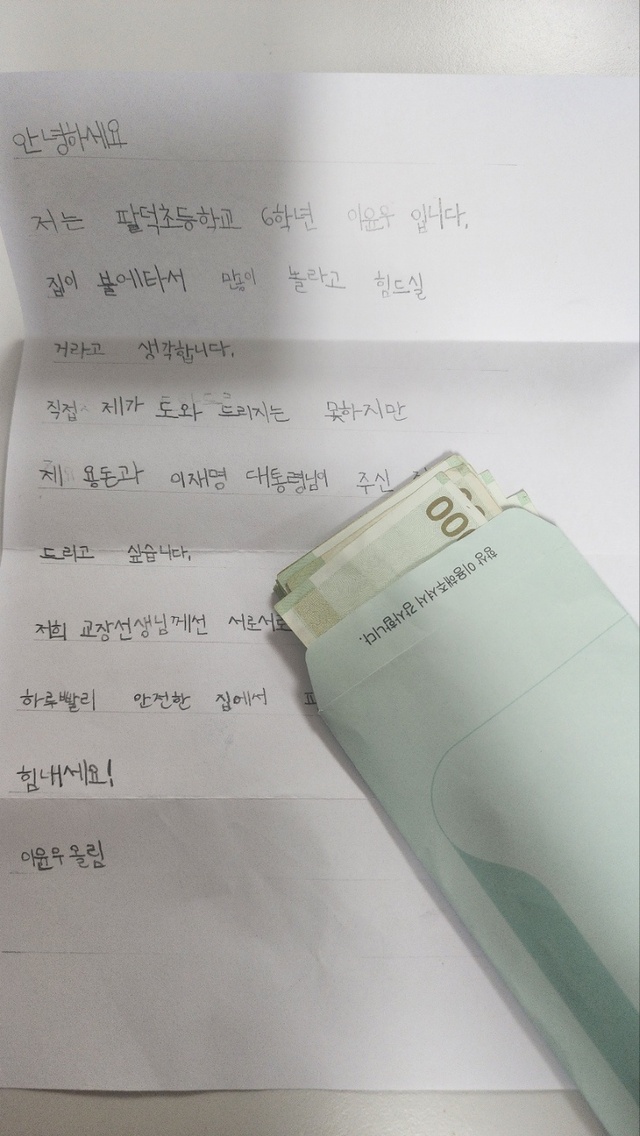 안녕하세요
저는 팔덕초등학교 6학년 이윤우 입니다.
집이 불에타서 많이 놀라고 힘드실
거라고 생각합니다.
직접 제가 도와 드리지는 못하지만
제 용돈과 이재명 대통령님이 주신
드리고 싶습니다.
저희 교장선생님께선 서로서로
하루빨리 안전한 집에서
힘내세요!
이윤우올림
00
항상 이용해주셔서 감사합니다.